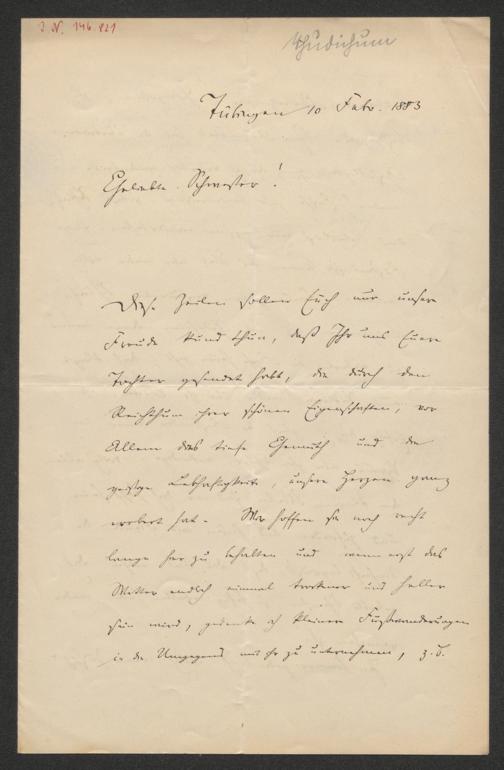 J. N. 146.821
Thudichum
Tübingen 10 Febr. 1883
Geliebte Schwester!
Diese Zeilen sollen Euch nur unsere
Freude kund thun, daß Ihr uns Eure
Tochter gesendet habt, die durch den
Reichthum ihrer schönen Eigenschaften, vor
Allem das tiefe Gemüth und die
geistige Lebhaftigkeit, unsere Herzen ganz
erobert hat. Wir hoffen sie noch recht
lange hier zu behalten und wenn erst das
Wetter endlich einmal trockener und heller
sein wird, gedenke ich kleinere Fußwanderungen
in die Umgegend mit ihr zu unternehmen, z. B.